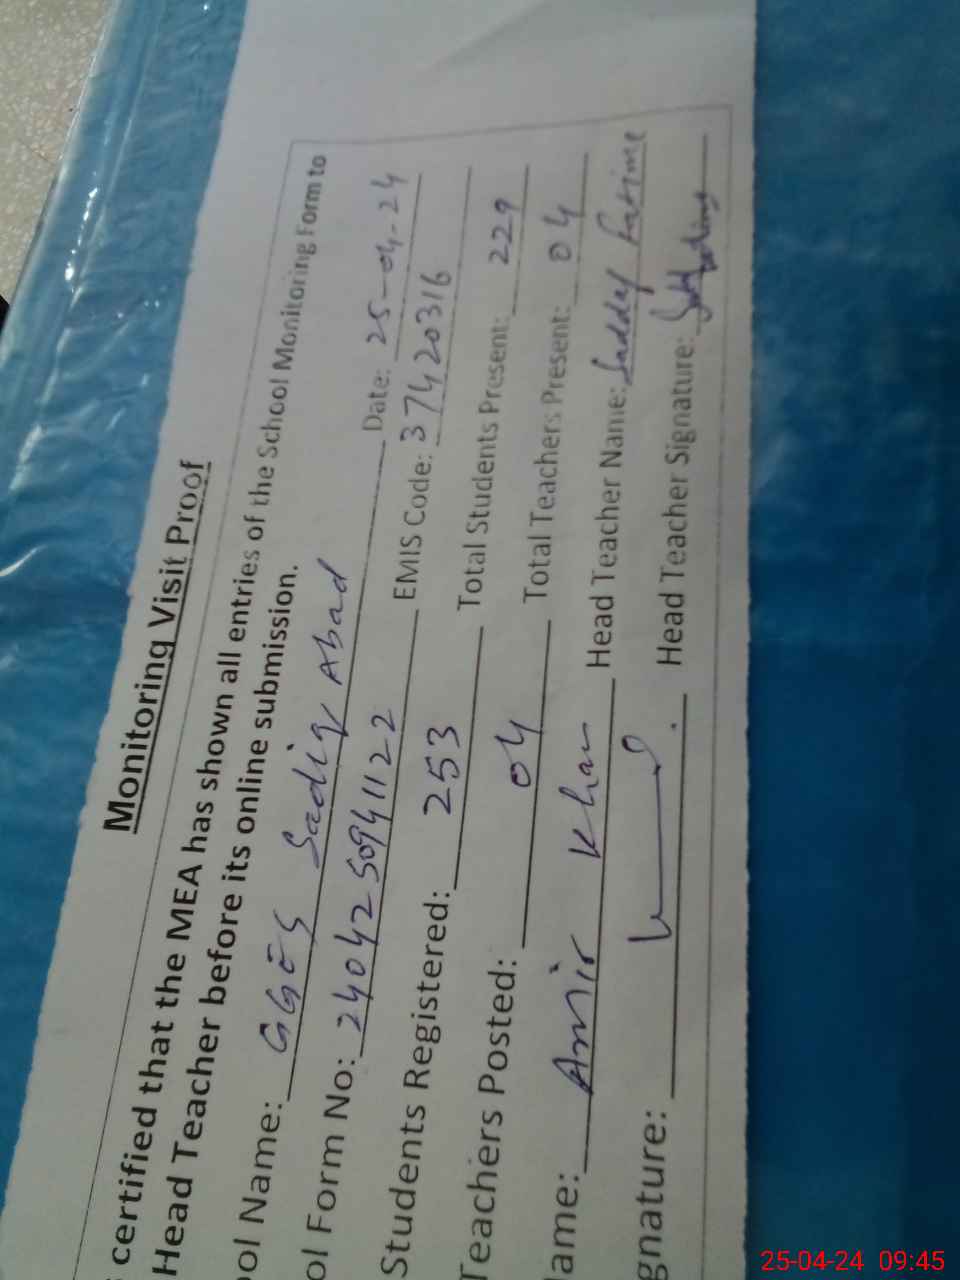 Monitoring Visit Proof
certified that the MEA has shown all entries of the School Monitoring Form to
Head Teacher before its online submission.
ool Name: GGES Sadiq Abad Date: 25-04-24
ol Form No: 2404250941122 EMIS Code: 37420316
Students Registered: 253 Total Students Present: 229
Teachers Posted: 04 Total Teachers Present: 04
ame: Amir Khan Head Teacher Name: Saddaf Fatime
gnature: Head Teacher Signature:
25-04-24 09:45